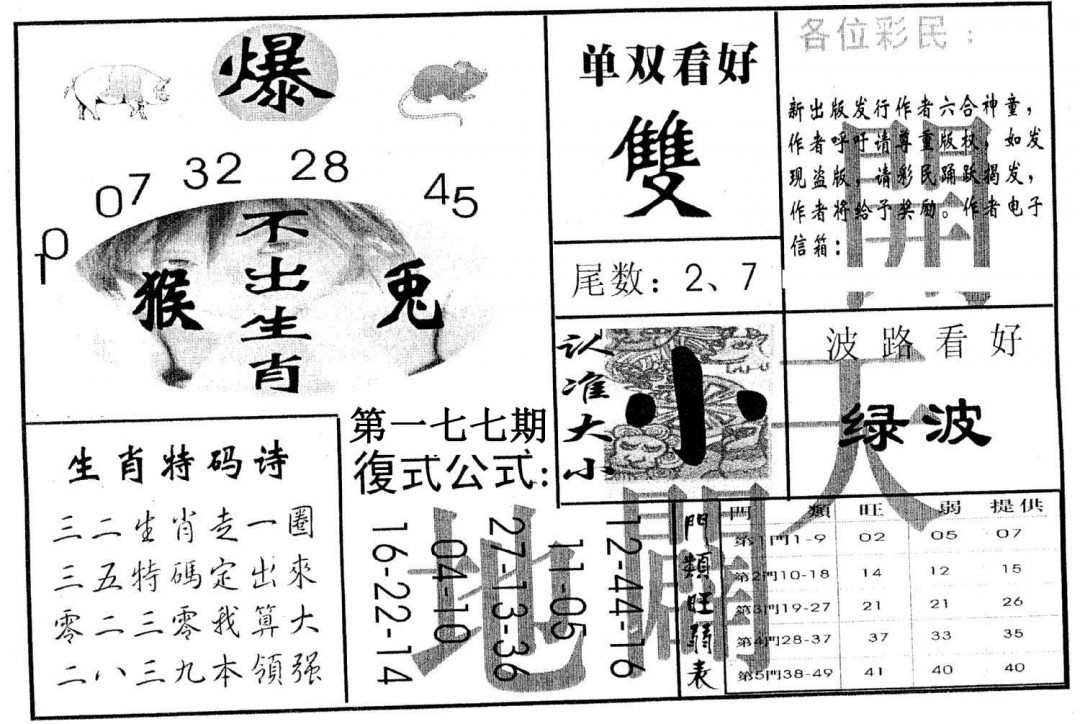 爆
10 07 32 28 45
猴
不出生肖
兔
生肖特码诗
三二生肖走一圈
三五特碼定出來
零二三零我算大
二八三九本領强
第一七七期
復式公式:
16-22-14
04-10
27-13-36
11-05
12-44-16
单双看好
雙
尾数：2、7
认准大小
小
各位彩民：
新出版发行作者六合神童，
作者呼吁请尊重版权，如发
现盗版，请彩民踊跃揭发，
作者将给予奖励。作者电子
信箱：
波路看好
绿波
開天
地闢
門類旺弱表
門類 旺 弱 提供
第1門1-9 02 05 07
第2門10-18 14 12 15
第3門19-27 21 21 26
第4門28-37 37 33 35
第5門38-49 41 40 40